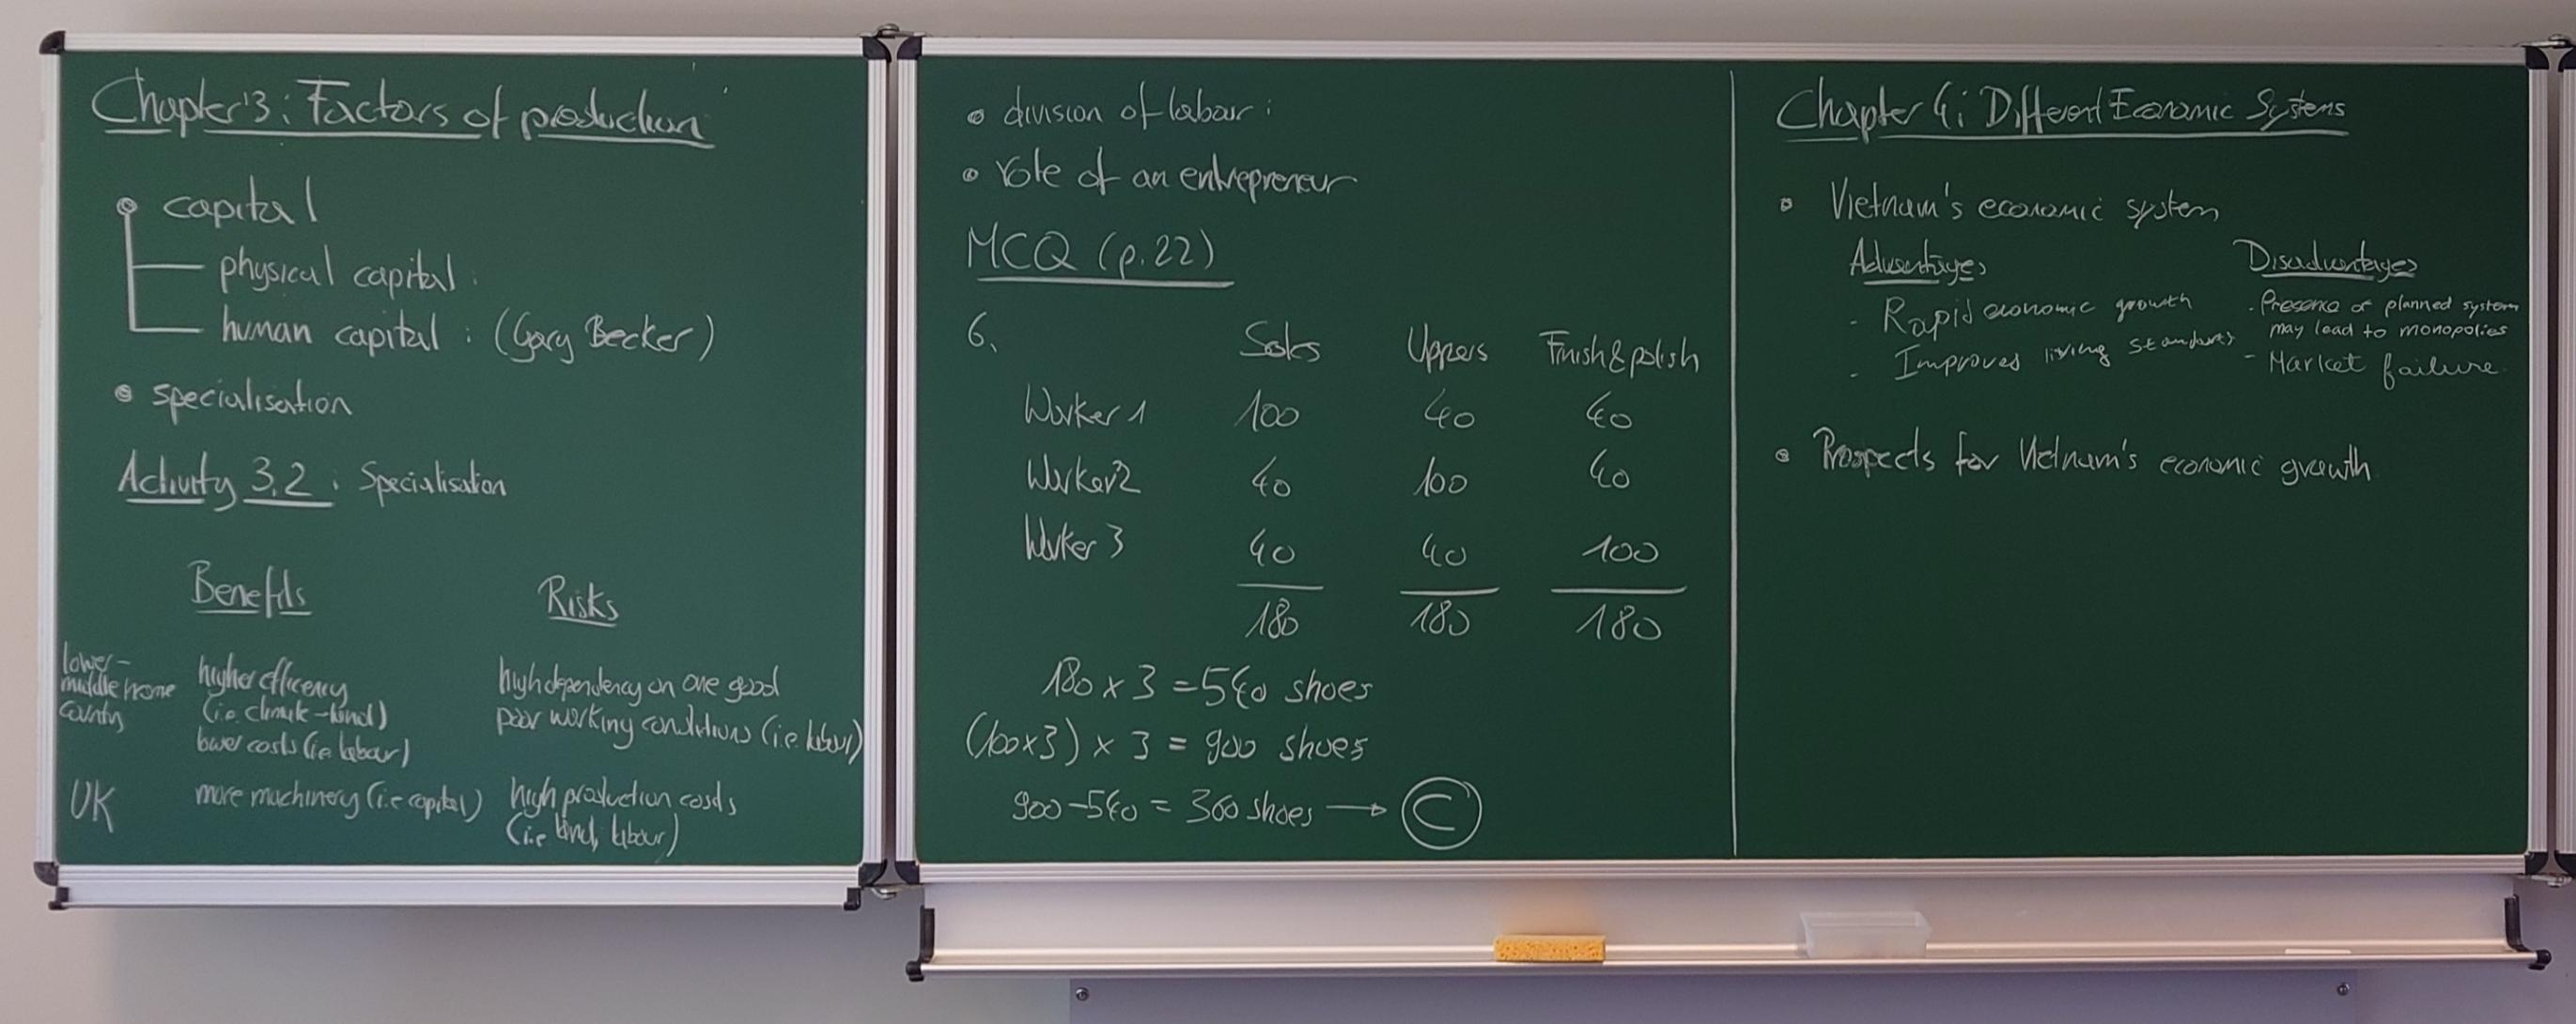 Chapter 3: Factors of production
capital
physical capital:
human capital: (Gary Becker)
specialisation
Activity 3.2: Specialisation
Benefits Risks
lower-
middle income
country
higher efficiency
(i.e. climate-land)
lower costs (i.e. labour)
high dependency on one good
poor working conditions (i.e. labour)
UK
more machinery (i.e capital)
high production costs
(i.e land, labour)
division of labour:
role of an entrepreneur
MCQ (p.22)
6. Soles Uppers Finish & polish
Worker 1 100 40 40
Worker 2 40 100 40
Worker 3 40 40 100
180 180 180
180 x 3 = 540 shoes
(100x3) x 3 = 900 shoes
900-540 = 360 shoes → C
Chapter 4: Different Economic Systems
Vietnam's economic system
Advantages
- Rapid economic growth
- Improved living standards
Disadvantages
- Presence of planned system
may lead to monopolies
- Market failure
Prospects for Vietnam's economic growth